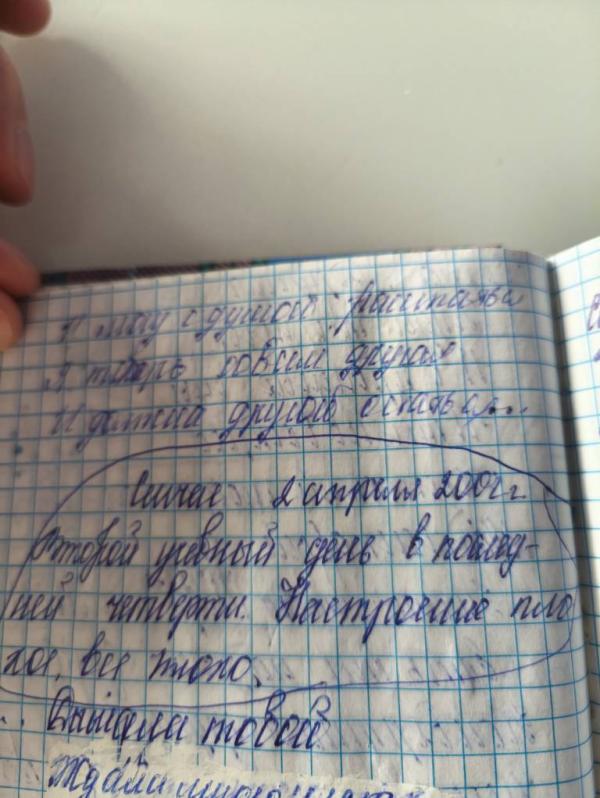 могу с душой расстаться
Я теперь совсем другая
И должна другой остаться...
Сейчас 2 апреля 2002 г.
Второй учебный день в послед-
ней четверти. Настроение пло
хое, все плохо.
Дышала тобой
Ждала